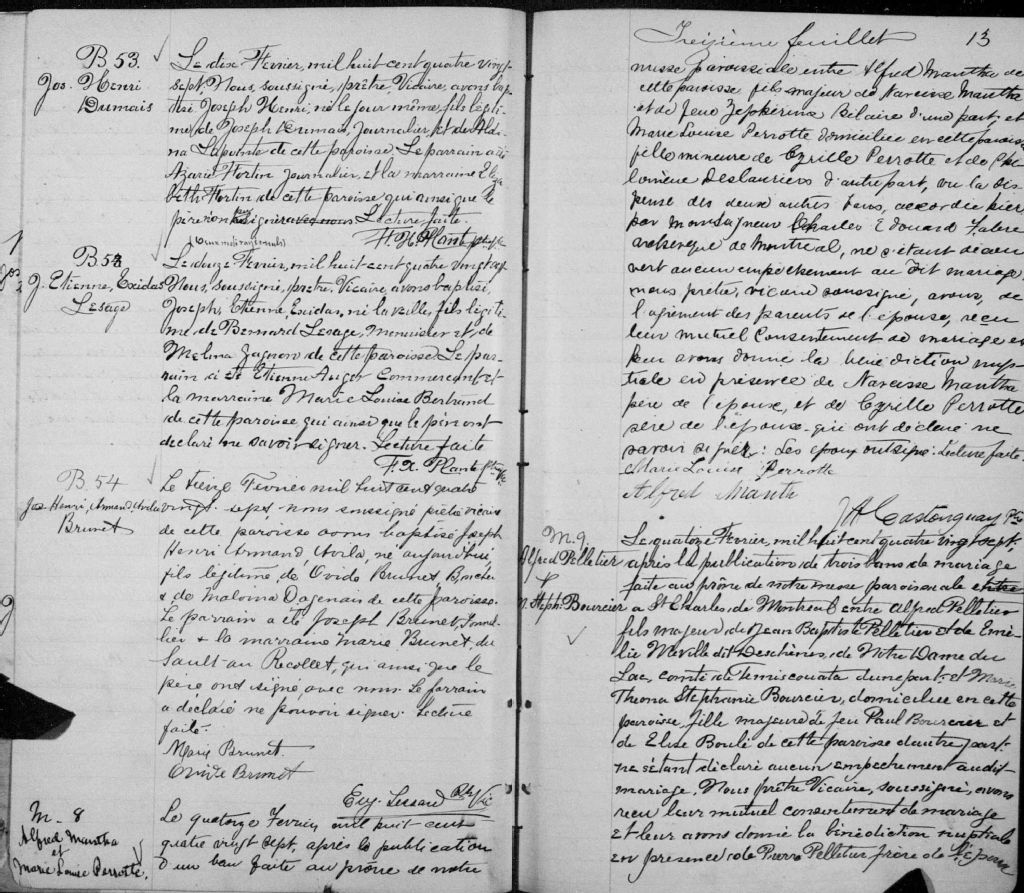 B 53.
Jos. Henri
Dumais
Le dix Fevrier, mil huit cent quatre vingt
sept, Nous, soussigné, prêtre, Vicaire, avons bap
tisé Joseph Henri, né le jour même, fils légiti
me de Joseph Dumais, Journalier, et de Aldi
na Lapointe de cette paroisse. Le parrain a été
Nazaire Fortin Journalier, et la marraine Eliza
beth Fortin de cette paroisse qui ainsi que le
père n'ont pas signé avec nous. Lecture faite.
F. X. Plante ptre Vic
B 54
J. Etienne, Exidas
Lesage
Le douze Fevrier, mil huit cent quatre vingt sept
Nous, soussigné, prêtre, Vicaire, avons baptisé,
Joseph, Etienne, Exidas, né la veille, fils légiti
me de Bernard Lesage, Menuisier et de
Melina Gagnon de cette paroisse. Le par
rain a été Etienne Auger Commercant et
la marraine Marie Louise Bertrand
de cette paroisse qui ainsi que le père ont
déclaré ne savoir signer. Lecture faite
F. X. Plante ptre Vic
B 54
Jos. Henri, Armand, Avila
Brunet
Le treize Fevrier mil huit cent quatre
vingt sept nous soussigné prêtre vicaire
de cette paroisse avons baptisé Joseph
Henri Armand, Avila, né aujourd'hui
fils légitime de Ovide Brunet, Boucher
& de Malvina Dagenais de cette paroisse.
Le parrain a été Joseph Brunet,
& la marraine Marie Brunet, du
Sault-au Recollet, qui ainsi que le
père ont signé avec nous. Le parrain
a déclaré ne pouvoir signer. Lecture
faite.
Marie Brunet
Ovide Brunet
Eug. Lessard Ptre Vic
M. 8
Alfred Mantha
et
Marie Louise Perrotte
Le quatorze Fevrier mil huit cent
quatre vingt sept, après la publication
d'un ban faite au prône de notre
Treizième feuillet 13
messe paroissiale entre Alfred Mantha de
cette paroisse fils majeur de Narcisse Mantha
et de feue Zephirina Bilaire d'une part, et
Marie Louise Perrotte domiciliée en cette paroisse
fille mineure de Cyrille Perrotte et de Phi
lomène Deslauriers d'autre part, vu la dis
pense des deux autres bans, accordée hier
par Monseigneur Charles Edouard Fabre
archevêque de Montréal, ne s'étant décou
vert aucun empêchement au dit mariage
nous, prêtre, vicaire soussigné, avons, de
l'agrément des parents de l'épouse, reçu
leur mutuel Consentement de mariage et
leur avons donné la bénédiction nup
tiale en présence de Narcisse Mantha
père de l'époux, et de Cyrille Perrotte
père de l'épouse qui ont déclaré ne
savoir signer. Les époux ont signé. Lecture faite
Marie Louise Perrotte
Alfred Mantha
J A Castonguay Ptre
M. 9.
Alfred Pelletier
&
M. Steph. Bourcier
Le quatorze Fevrier, mil huit cent quatre vingt sept,
après la publication de trois bans de mariage
faite au prône de notre messe paroissiale entre
à St Charles de Montreal entre Alfred Pelletier
fils majeur de Jean Baptiste Pelletier et de Emé
lie Miville dit Deschènes, de Notre Dame du
Lac, comté de Temiscouata d'une part, et Marie
Thona Stephanie Bourcier, domiciliée en cette
paroisse, fille majeure de feu Paul Bourcier et
de Elise Boulé de cette paroisse d'autre part
ne s'étant déclaré aucun empêchement au dit
mariage. Nous prêtre Vicaire, soussigné, avons
reçu leur mutuel consentement de mariage
et leur avons donné la bénédiction nuptiale
en présence de Pierre Pelletier frère de l'époux